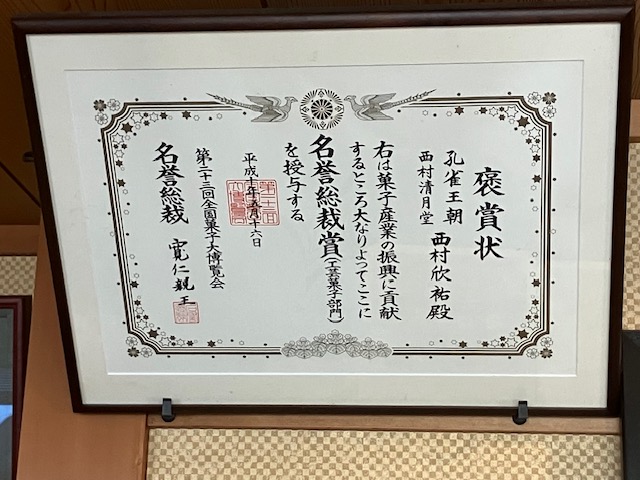 褒賞状
孔雀王朝
西村清月堂
西村欣祐殿
右は菓子産業の振興に貢献
するところ大なりよってここに
名誉総裁賞(工芸菓子部門)
を授与する
平成十年五月十六日
第二十三回全国菓子大博覧会
名誉総裁 寛仁親王